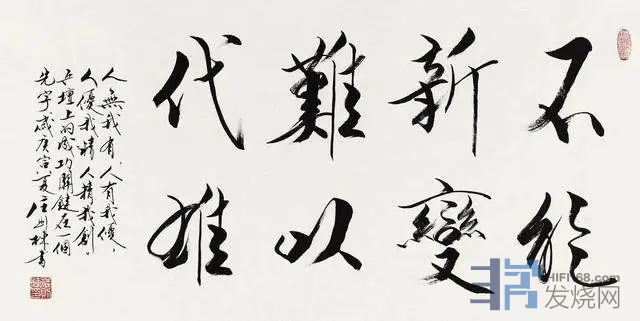 不能
新變
難以
代雄
人無我有，人有我優，
人優我精，人精我創。
乒壇上的成功關鍵在一個
先字 歲庚寅夏庄則棟書
HIFI168.com
发烧网